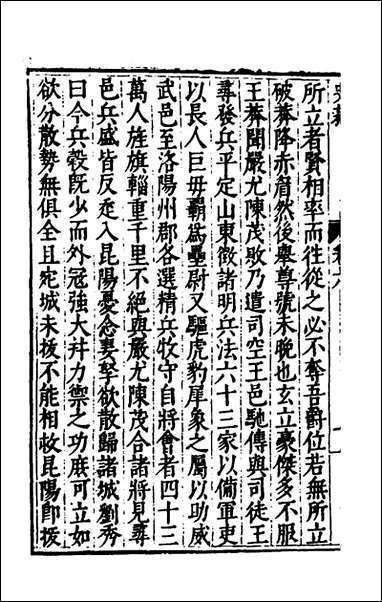 所立者賢相率而徃從之必不奪吾爵位若無所立
破莽降赤眉然後舉尊號未晚也玄立豪傑多不服
王莽聞嚴尤陳茂敗乃遣司空王邑馳傳與司徒王
尋發兵平定山東徵諸明兵法六十三家以備軍吏
以長人巨毋霸爲壘尉又驅虎豹犀象之屬以助威
武邑至洛陽州郡各選精兵牧守自將會者四十三
萬人旌旗輜重千里不絶與嚴尤陳茂合諸將見尋
邑兵盛皆反走入昆陽憂念妻孥欲散歸諸城劉秀
曰今兵穀旣少而外冦強大幷力禦之功庶可立如
欲分散勢無俱全且宛城未拔不能相救昆陽卽拔